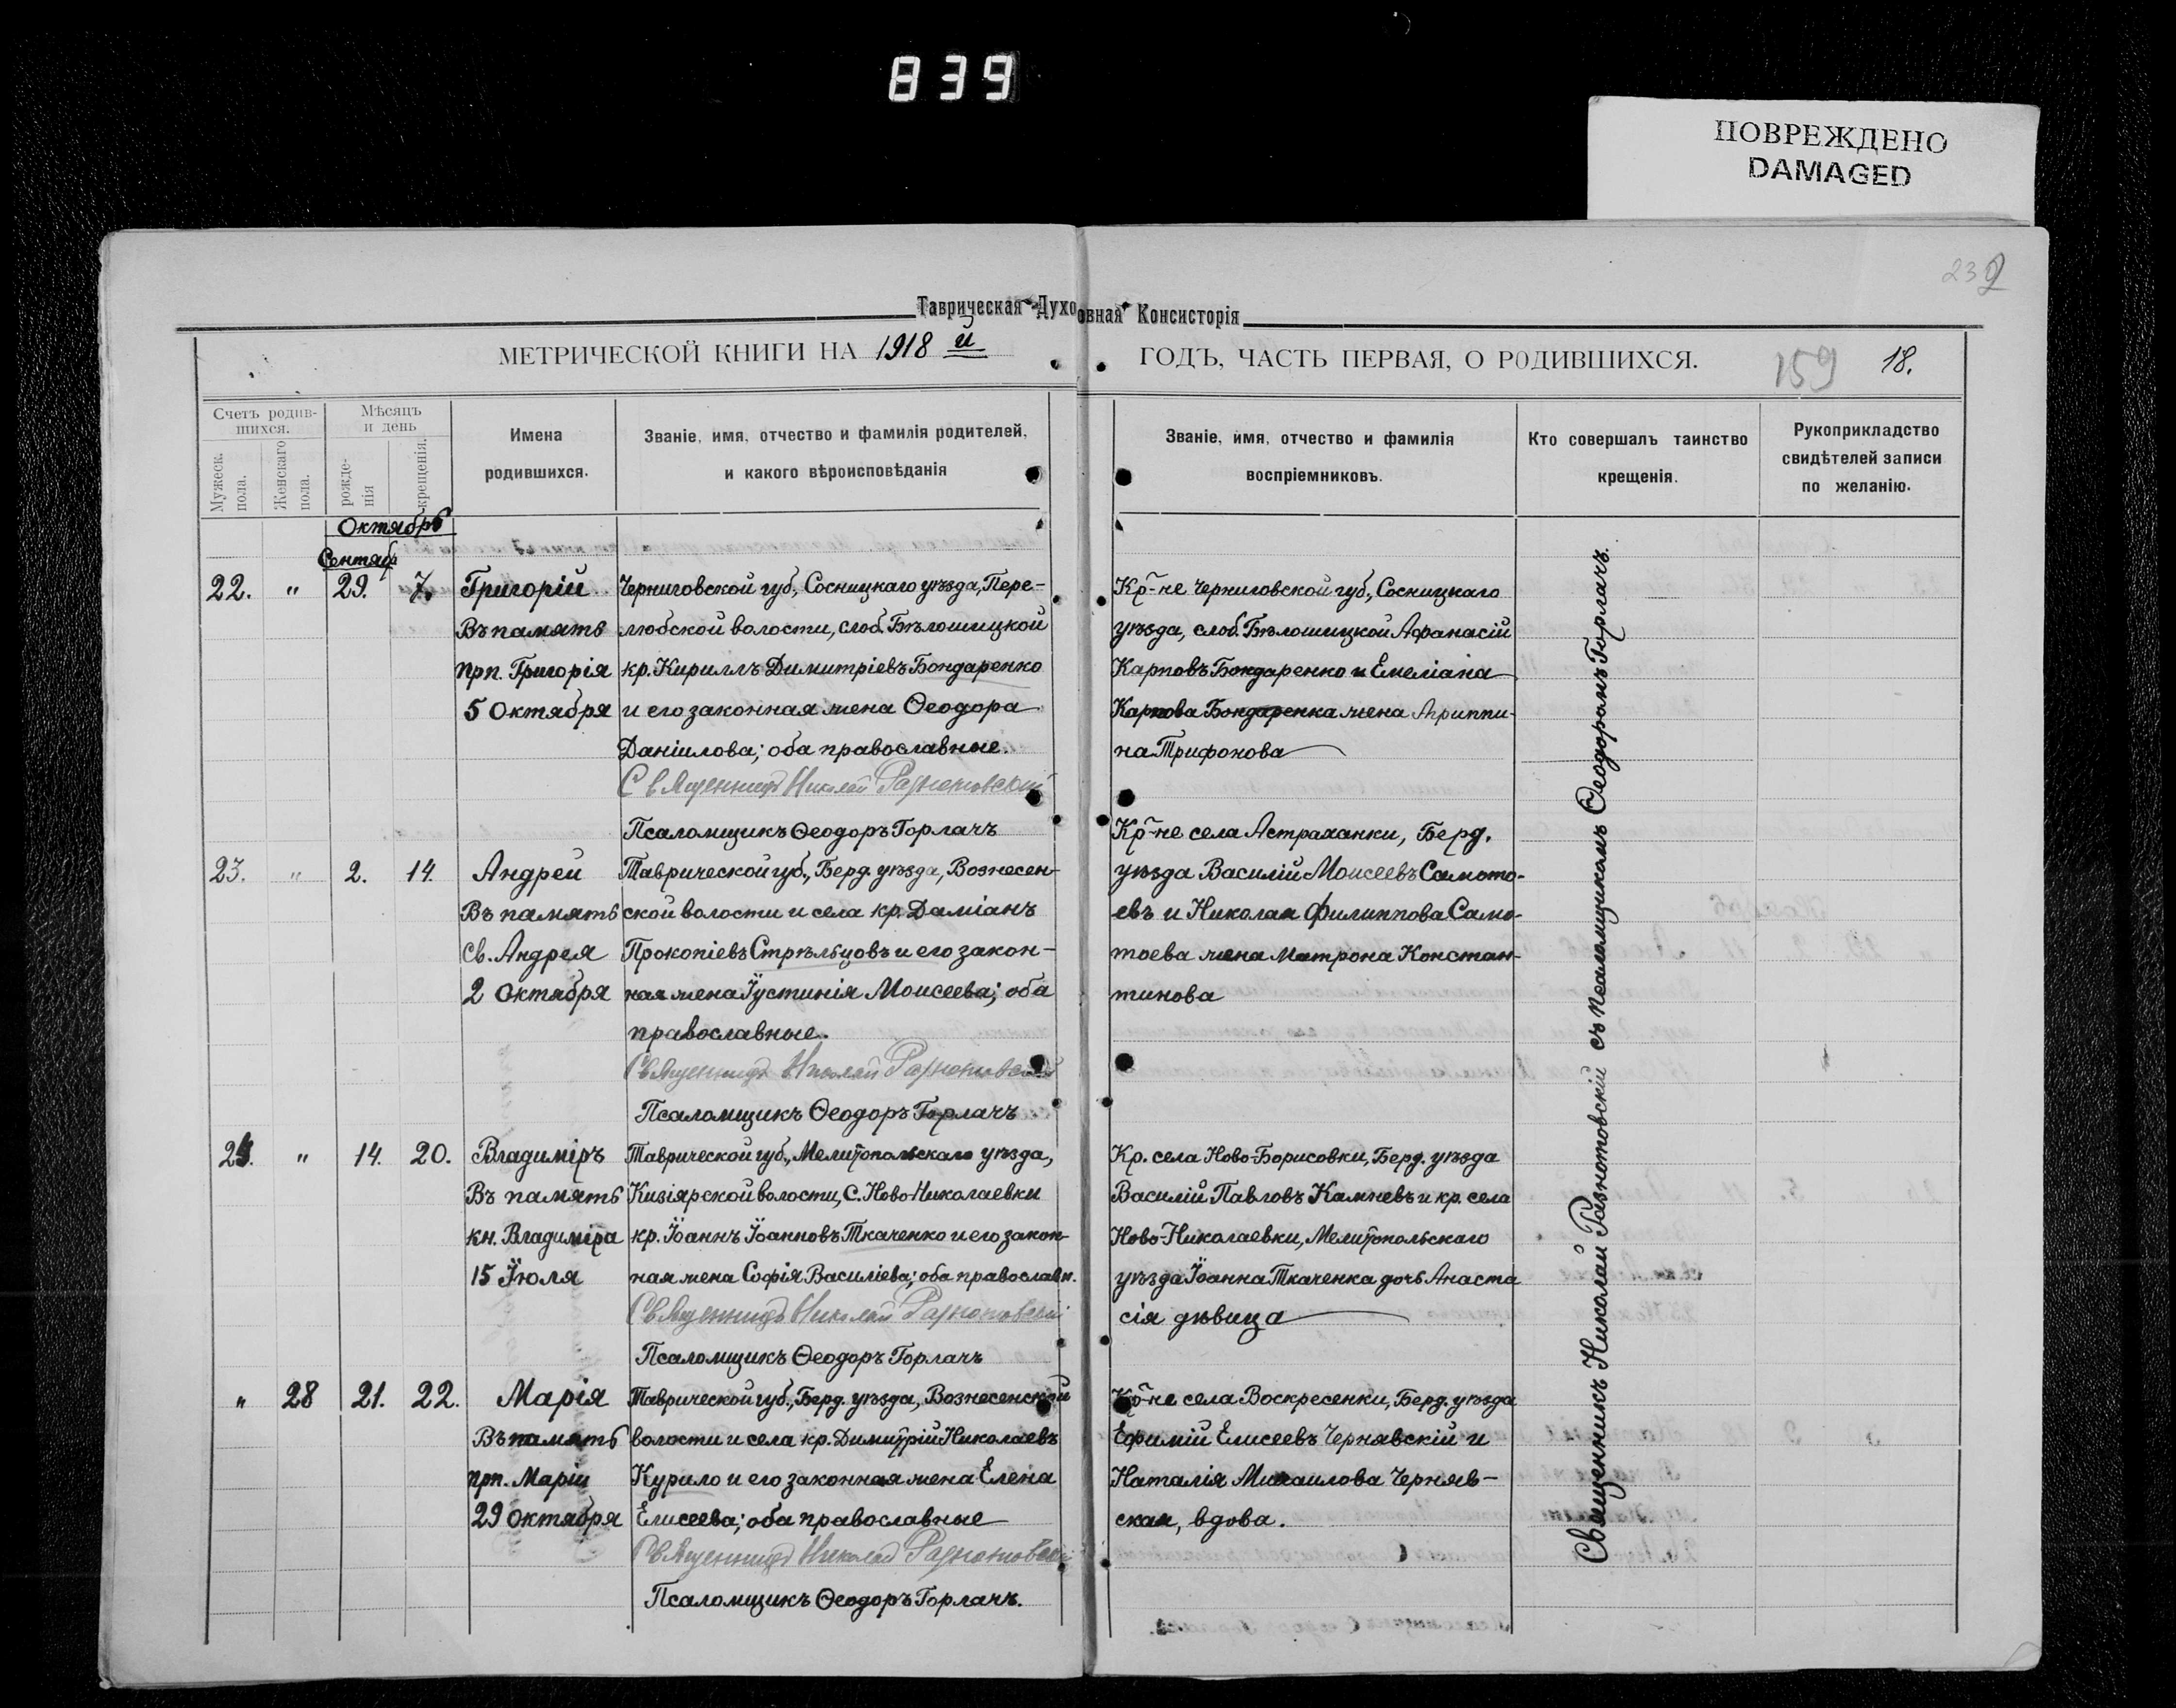 839
ПОВРЕЖДЕНО
DAMAGED
239
Таврическая Духовная Консисторія
МЕТРИЧЕСКОЙ КНИГИ НА 1918 й
ГОДЪ, ЧАСТЬ ПЕРВАЯ, О РОДИВШИХСЯ.
159
18.
Счетъ родив-
шихся.
Мужеск.
пола.
Женскаго
пола.
Мѣсяцъ
и день
рожде-
нія
крещенія.
Имена
родившихся.
Званіе, имя, отчество и фамилія родителей,
и какого вѣроисповѣданія
Званіе, имя, отчество и фамилія
воспріемниковъ.
Кто совершалъ таинство
крещенія.
Рукоприкладство
свидѣтелей записи
по желанію.
Октябрь
Сентяб
22. " 29. 7. Григорій
Въ память
прп. Григорія
5 Октября
Черниговской губ., Сосницкаго уѣзда, Пере-
любской волости, слоб. Бѣлошицкой
кр. Кириллъ Димитріевъ Бондаренко
и его законная жена Ѳеодора
Даніилова; оба православные.
Священникъ Николай Разнотовскій
Псаломщикъ Ѳеодоръ Горлачъ
Кр-не Черниговской губ., Сосницкаго
уѣзда, слоб. Бѣлошицкой Аѳанасій
Карповъ Бондаренко и Емеліана
Карпова Бондаренка жена Агриппи-
на Трифонова
23. " 2. 14. Андрей
Въ память
Св. Андрея
2 Октября
Таврической губ., Берд. уѣзда, Вознесен-
ской волости и села кр. Даміанъ
Прокопіевъ Стрѣльцовъ и его закон-
ная жена Іустинія Моисеева; оба
православные.
Священникъ Николай Разнотовскій
Псаломщикъ Ѳеодоръ Горлачъ
Кр-не села Астраханки, Берд.
уѣзда Василій Моисеевъ Самото-
евъ и Николая Филиппова Само-
тоева жена Матрона Констан-
тинова
24. " 14. 20. Владиміръ
Въ память
кн. Владиміра
15 Іюля
Таврической губ., Мелитопольскаго уѣзда,
Кизіярской волости, С. Ново-Николаевки
кр. Іоаннъ Іоанновъ Ткаченко и его закон-
ная жена Софія Василіева; оба православн.
Священникъ Николай Разнотовскій
Псаломщикъ Ѳеодоръ Горлачъ
Кр. села Ново-Борисовки, Берд. уѣзда
Василій Павловъ Камневъ и кр. села
Ново-Николаевки, Мелитопольскаго
уѣзда Іоанна Ткаченка дочь Анаста
сія дѣвица
" 28 21. 22. Марія
Въ память
прп. Маріи
29 Октября
Таврической губ., Берд. уѣзда, Вознесенской
волости и села кр. Димитрій Николаевъ
Курило и его законная жена Елена
Елисеева; оба православные
Священникъ Николай Разнотовскій
Псаломщикъ Ѳеодоръ Горлачъ.
Кр-не села Воскресенки, Берд. уѣзда
Ефимій Елисеевъ Чернявскій и
Наталія Михаилова Черняв-
ская, вдова.
Священникъ Николай Разнотовскій съ псаломщикомъ Ѳеодоромъ Горлачъ.